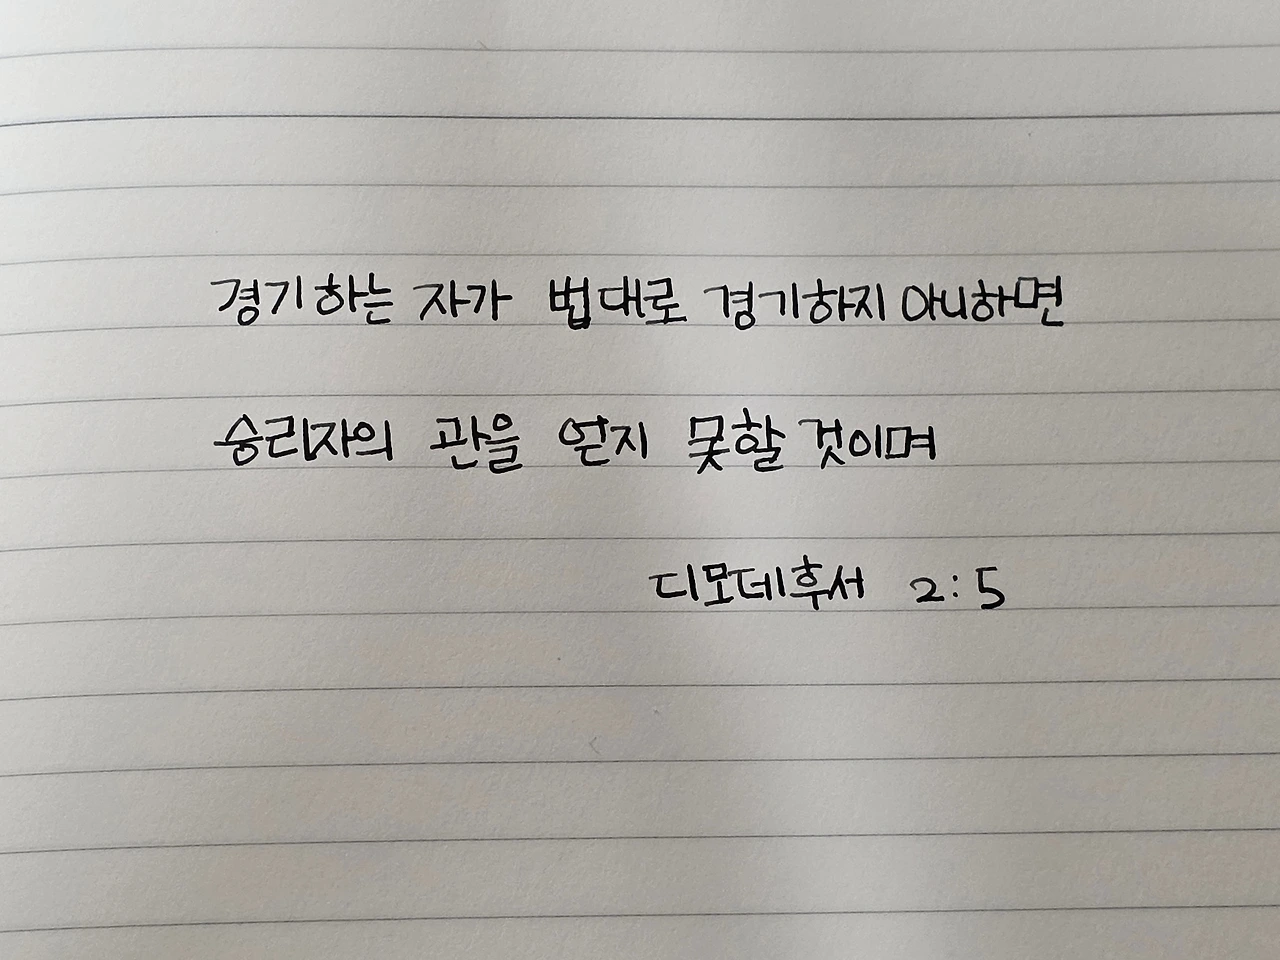 경기하는 자가 법대로 경기하지 아니하면
승리자의 관을 얻지 못할 것이며
디모데후서 2:5